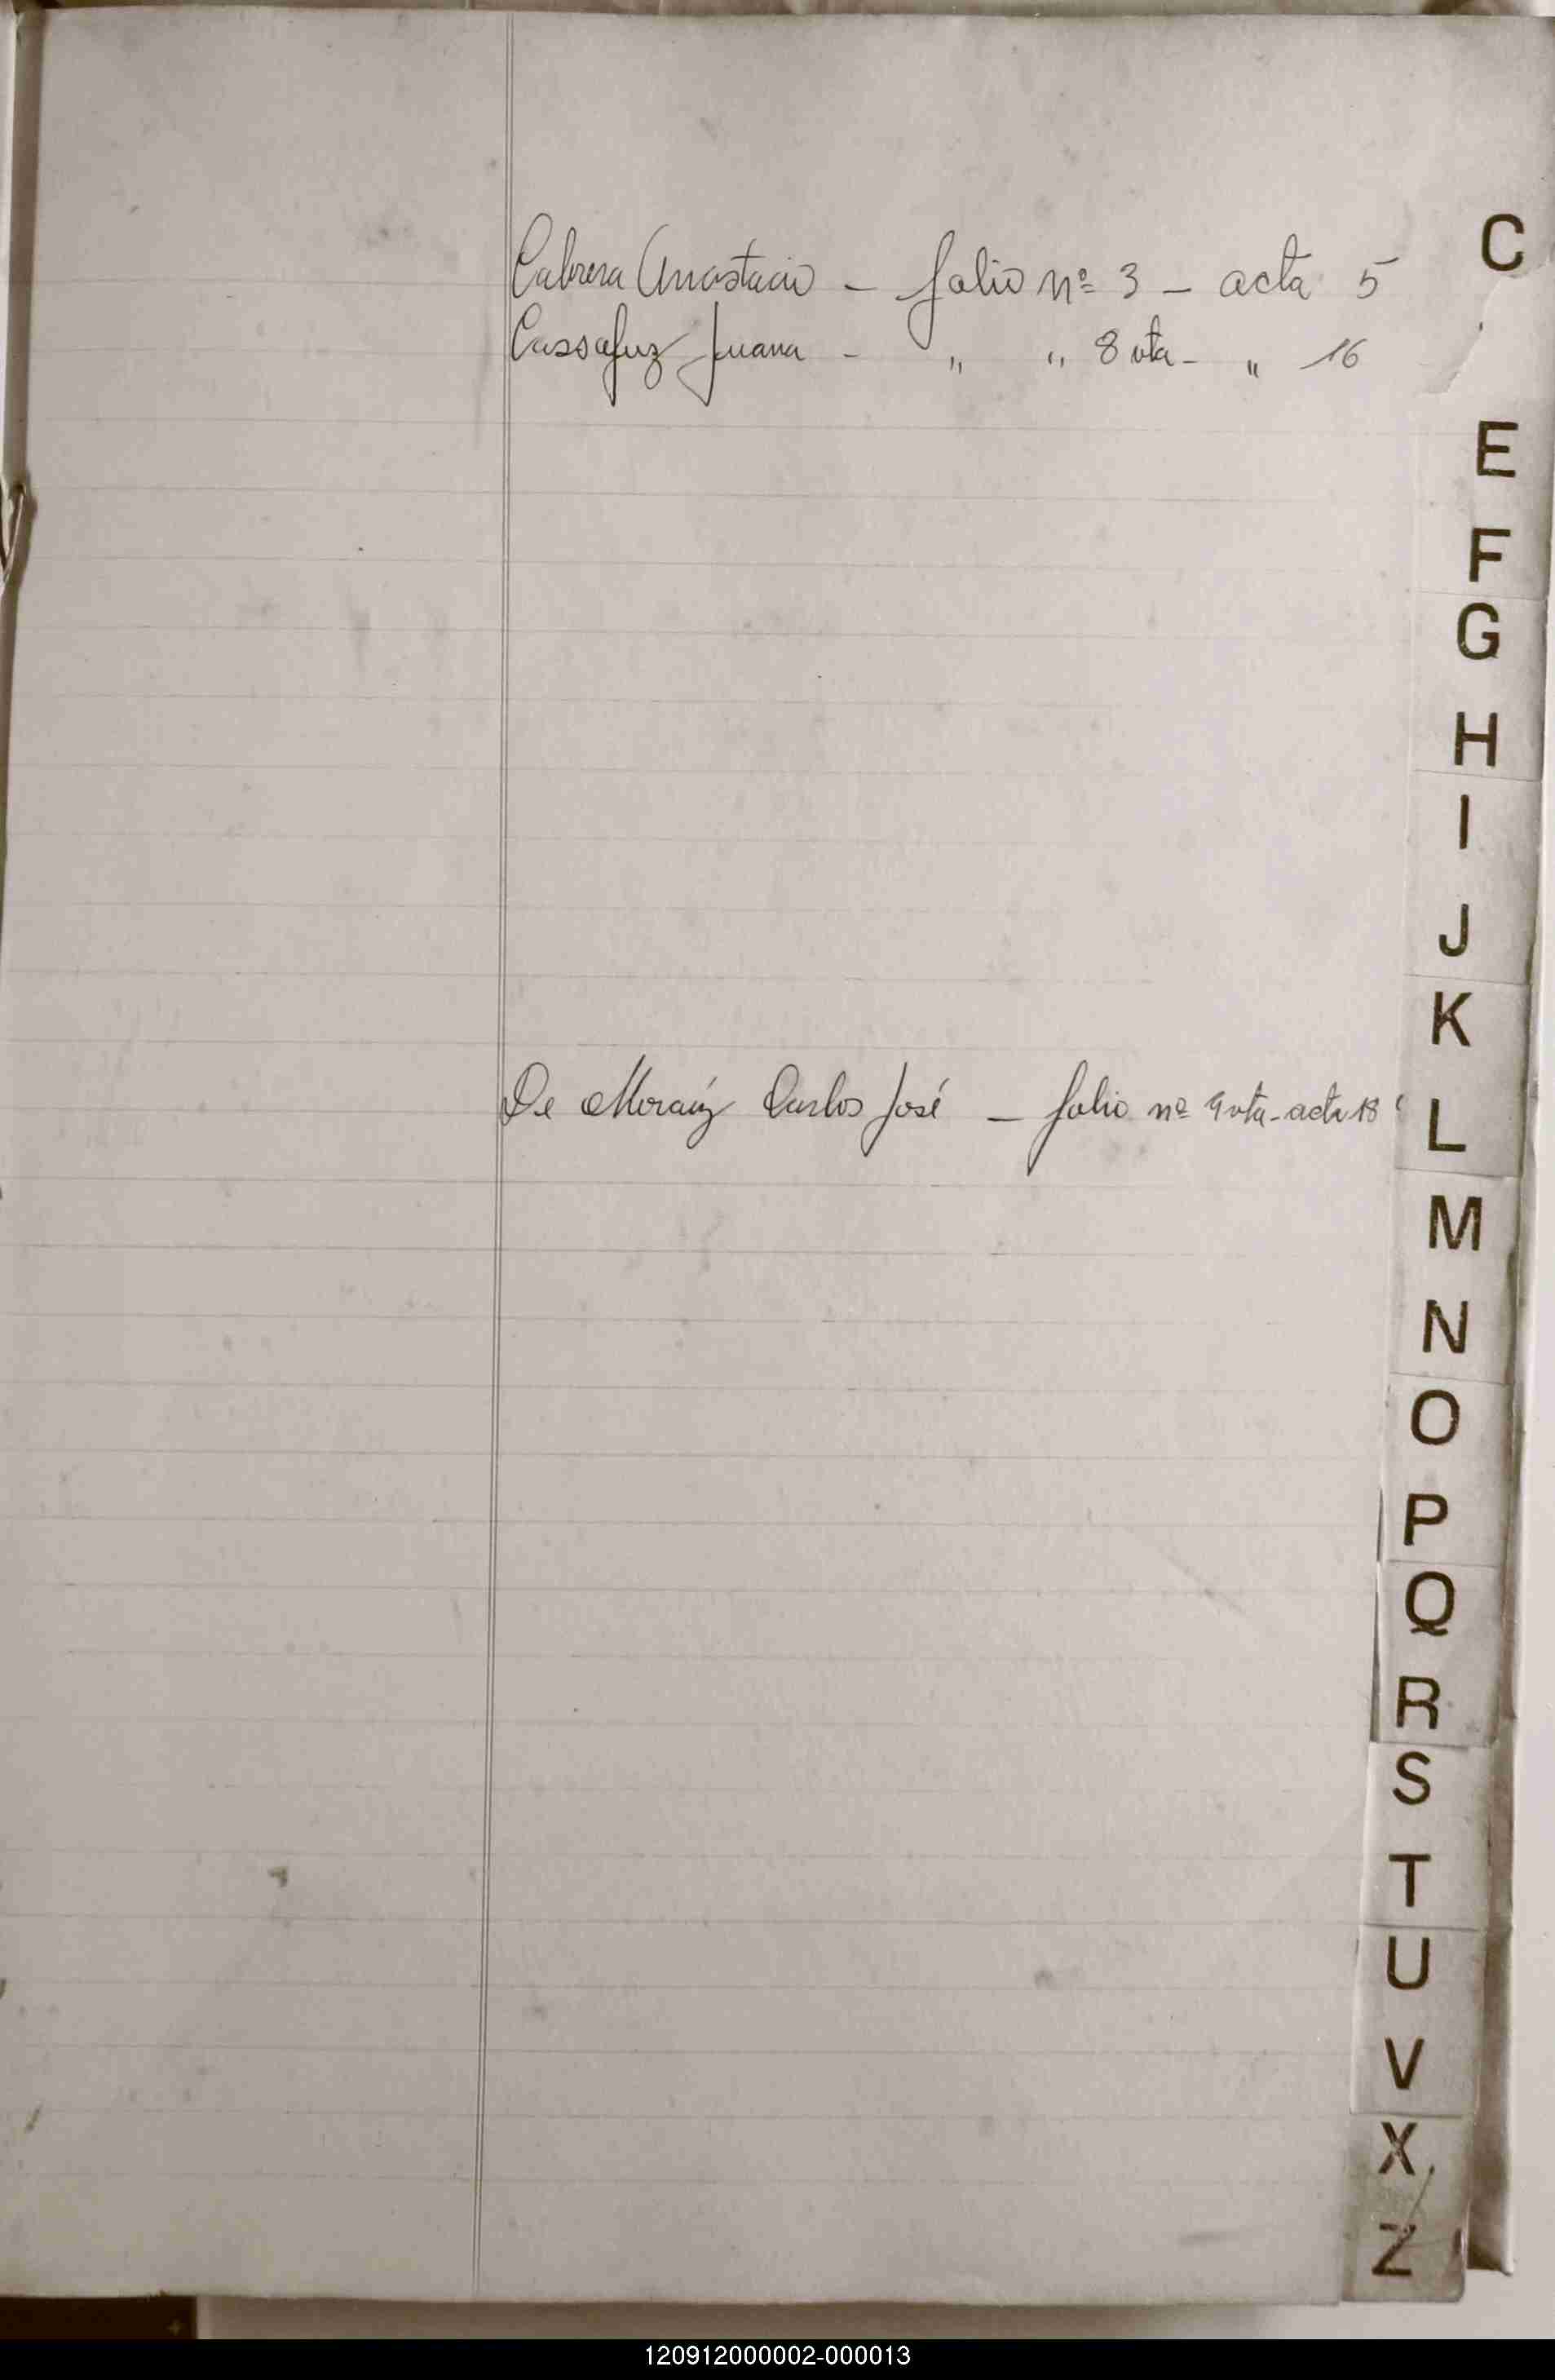 Cabrera Anastacio - folio nº 3 - acta 5
Cassafuz Juana - " " 8 vta - " 16
De Moraiz Carlos José - folio nº 9 vta - acta 18
C
E
F
G
H
I
J
K
L
M
N
O
P
Q
R
S
T
U
V
X
Z
120912000002-000013